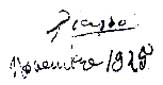 Picasso
Novembre 1925